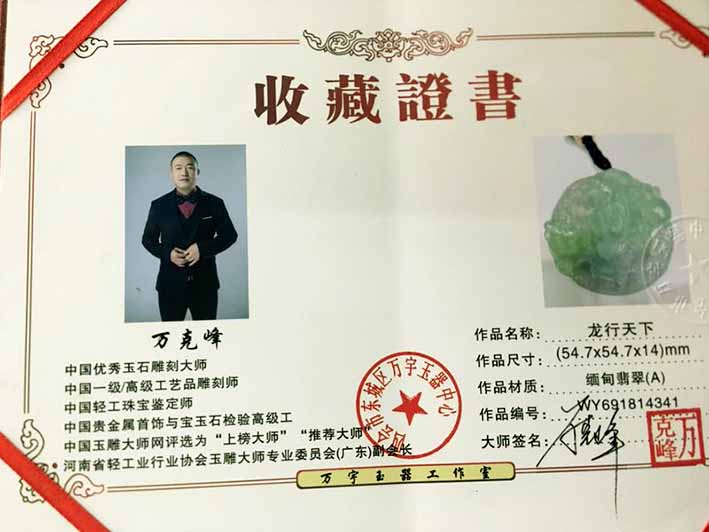 收藏證書
万克峰
中国优秀玉石雕刻大师
中国一级/高级工艺品雕刻师
中国轻工珠宝鉴定师
中国贵金属首饰与宝玉石检验高级工
中国玉雕大师网评选为“上榜大师”“推荐大师”
河南省轻工业行业协会玉雕大师专业委员会(广东)副会长
四会市东城区万宇玉器中心
作品名称: 龙行天下
作品尺寸: (54.7x54.7x14)mm
作品材质: 缅甸翡翠(A)
作品编号: WY691814341
大师签名:
万克峰
万宇玉器工作室